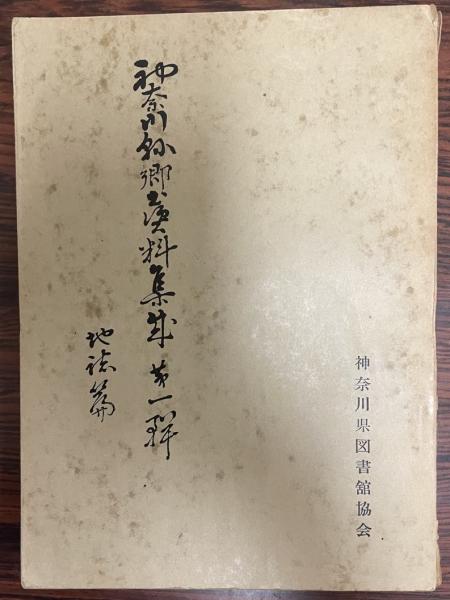 神奈川県図書舘協会
神奈川縣郷土資料集成 第一輯
地誌篇